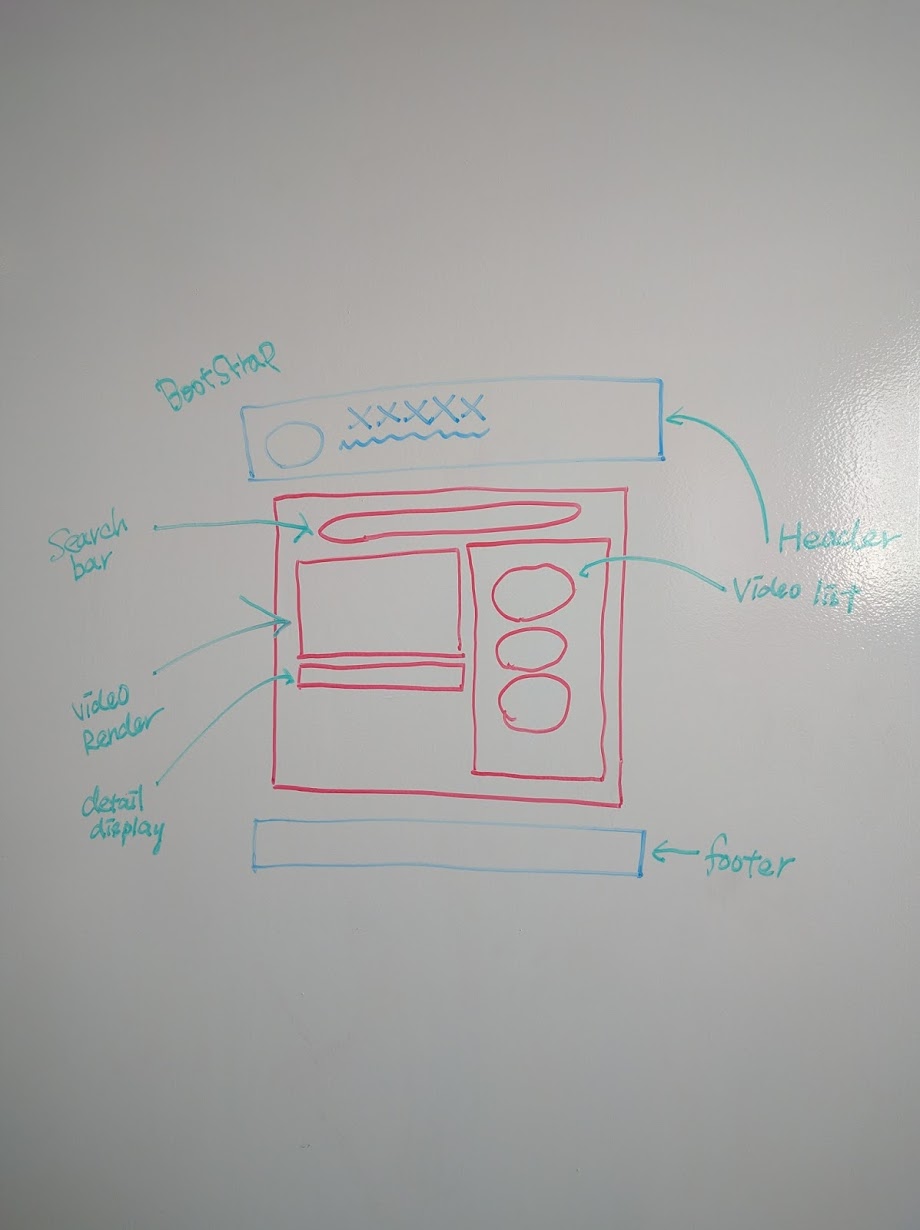 BootStrap
XXXXX
Search
bar
Header
Video list
video
Render
detail
display
footer